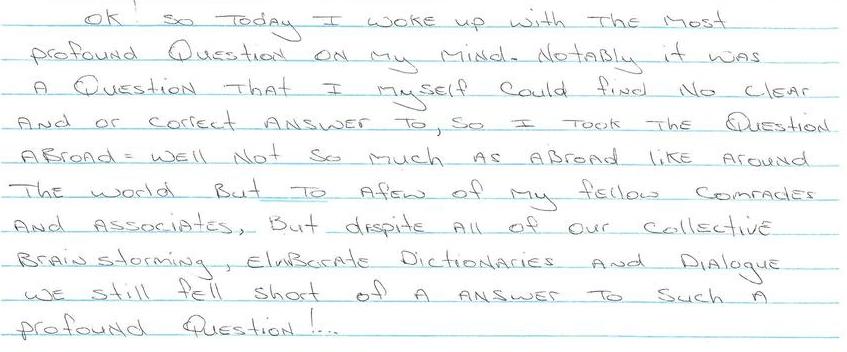 OK! So Today I woke up with The most
profound Question on my mind. Notably it was
A Question That I myself Could find No Clear
And or correct Answer To, So I Took The Question
Abroad = well Not So much As Abroad like Around
The world But To Afew of my fellow Comrades
And Associates, But despite All of our Collective
Brain storming, Elaborate Dictionaries And Dialogue
We still fell short of A Answer To Such A
profound Question!...